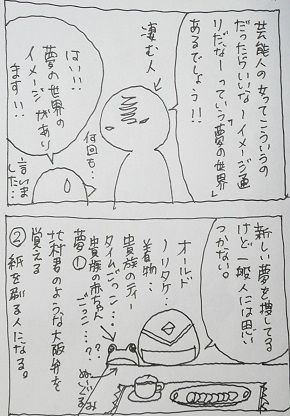 芸能人の女ってこういうの
だったらいいなーイメージ通
りだなーっていう「夢の世界」
あるでしょう!!
凄む人
はい…
夢の世界の
イメージがあり
ます!!
何回も…
言いま
した…
新しい夢を捜してる
けど一般人には思い
つかない。
オールド
ノリタケ…
着物…
貴族のティー
タイムごっこ…
貴族の赤なん
ごっこ…?
ぬいぐるみ
夢①
北村君のような大阪弁を
覚える
②紙を刷る人になる。